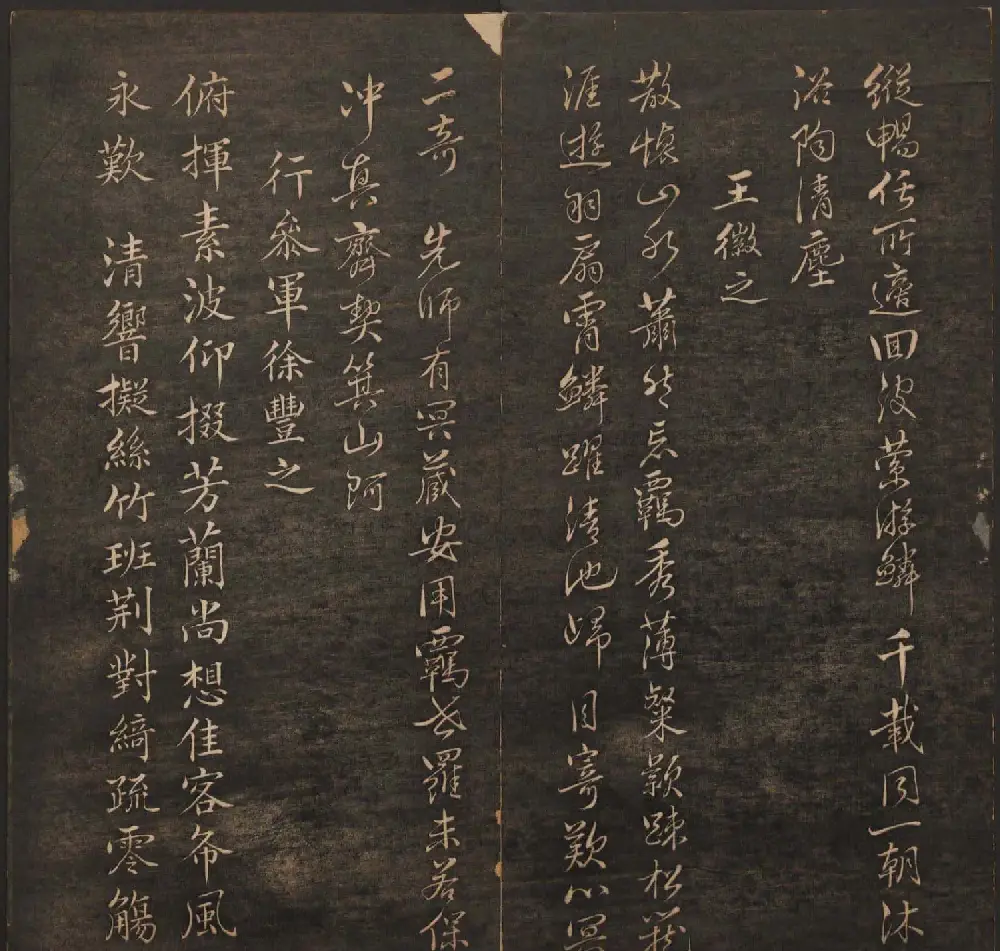 縱暢任所適回波縈游鱗 千載同一朝沐
浴陶清塵
王徽之
散懷山水蕭然忘羈秀薄粲穎疎松籠
涯遊羽扇霄鱗躍清池歸 目寄歎心冥
二奇 先師有冥藏安用羈世羅未若保
沖真齊契箕山阿
行叅軍徐豐之
俯揮素波仰掇芳蘭尚想佳客希風
永歎 清響擬絲竹班荆對綺疏零觴